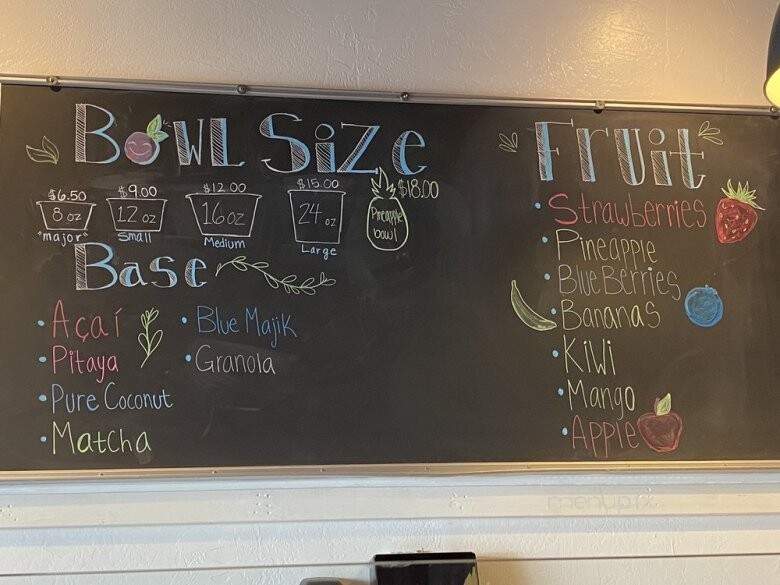 Bowl Size
$6.50
8 oz
"major"
$9.00
12 oz
Small
$12.00
16 oz
Medium
$15.00
24 oz
Large
$18.00
Pineapple
bowl
Base
• Açaí
• Pitaya
• Pure Coconut
• Matcha
• Blue Majik
• Granola
Fruit
• Strawberries
• Pineapple
• BlueBerries
• Bananas
• Kiwi
• Mango
• Apple
menupix